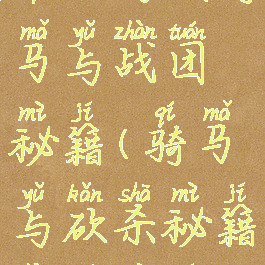 mǎ yǔ zhàn tuán
马与战团
mì jí qí mǎ
秘籍(骑马
yǔ kǎn shā mì jí
与砍杀秘籍